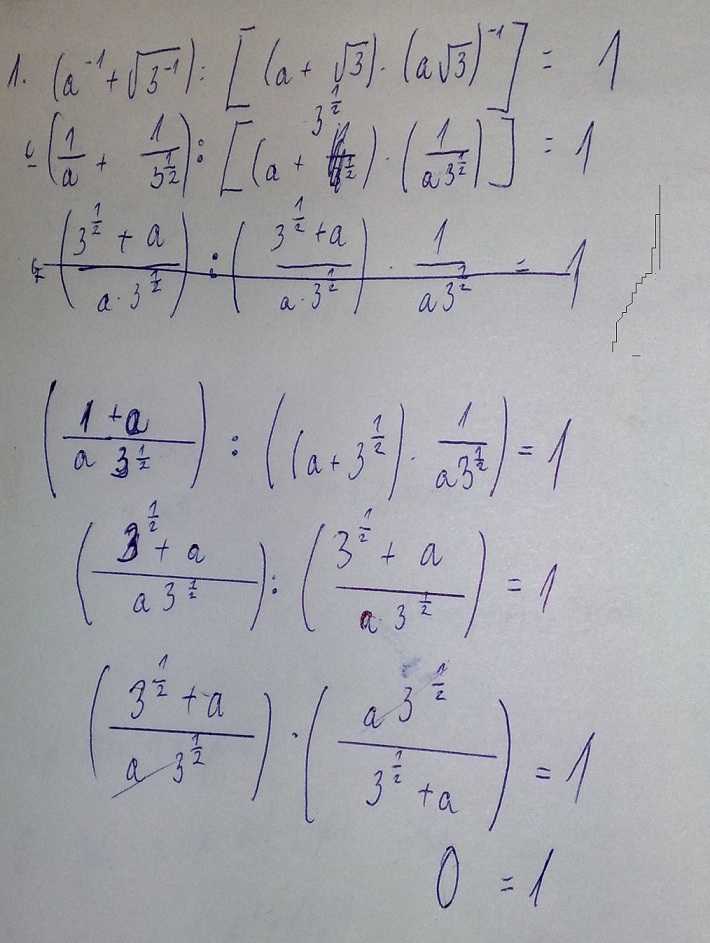 1. (a⁻¹ + √3⁻¹) : [(a + √3) · (a√3)⁻¹] = 1
(1/a + 1/3^½) : [(a + 3^½) · (1/a3^½)] = 1
(3^½ + a / a · 3^½) : (3^½ + a / a · 3^½) · 1/a3^½ = 1
(1 + a / a 3^½) : ((a + 3^½) · 1/a3^½) = 1
(3^½ + a / a 3^½) : (3^½ + a / a 3^½) = 1
(3^½ + a / a 3^½) · (a 3^½ / 3^½ + a) = 1
0 = 1